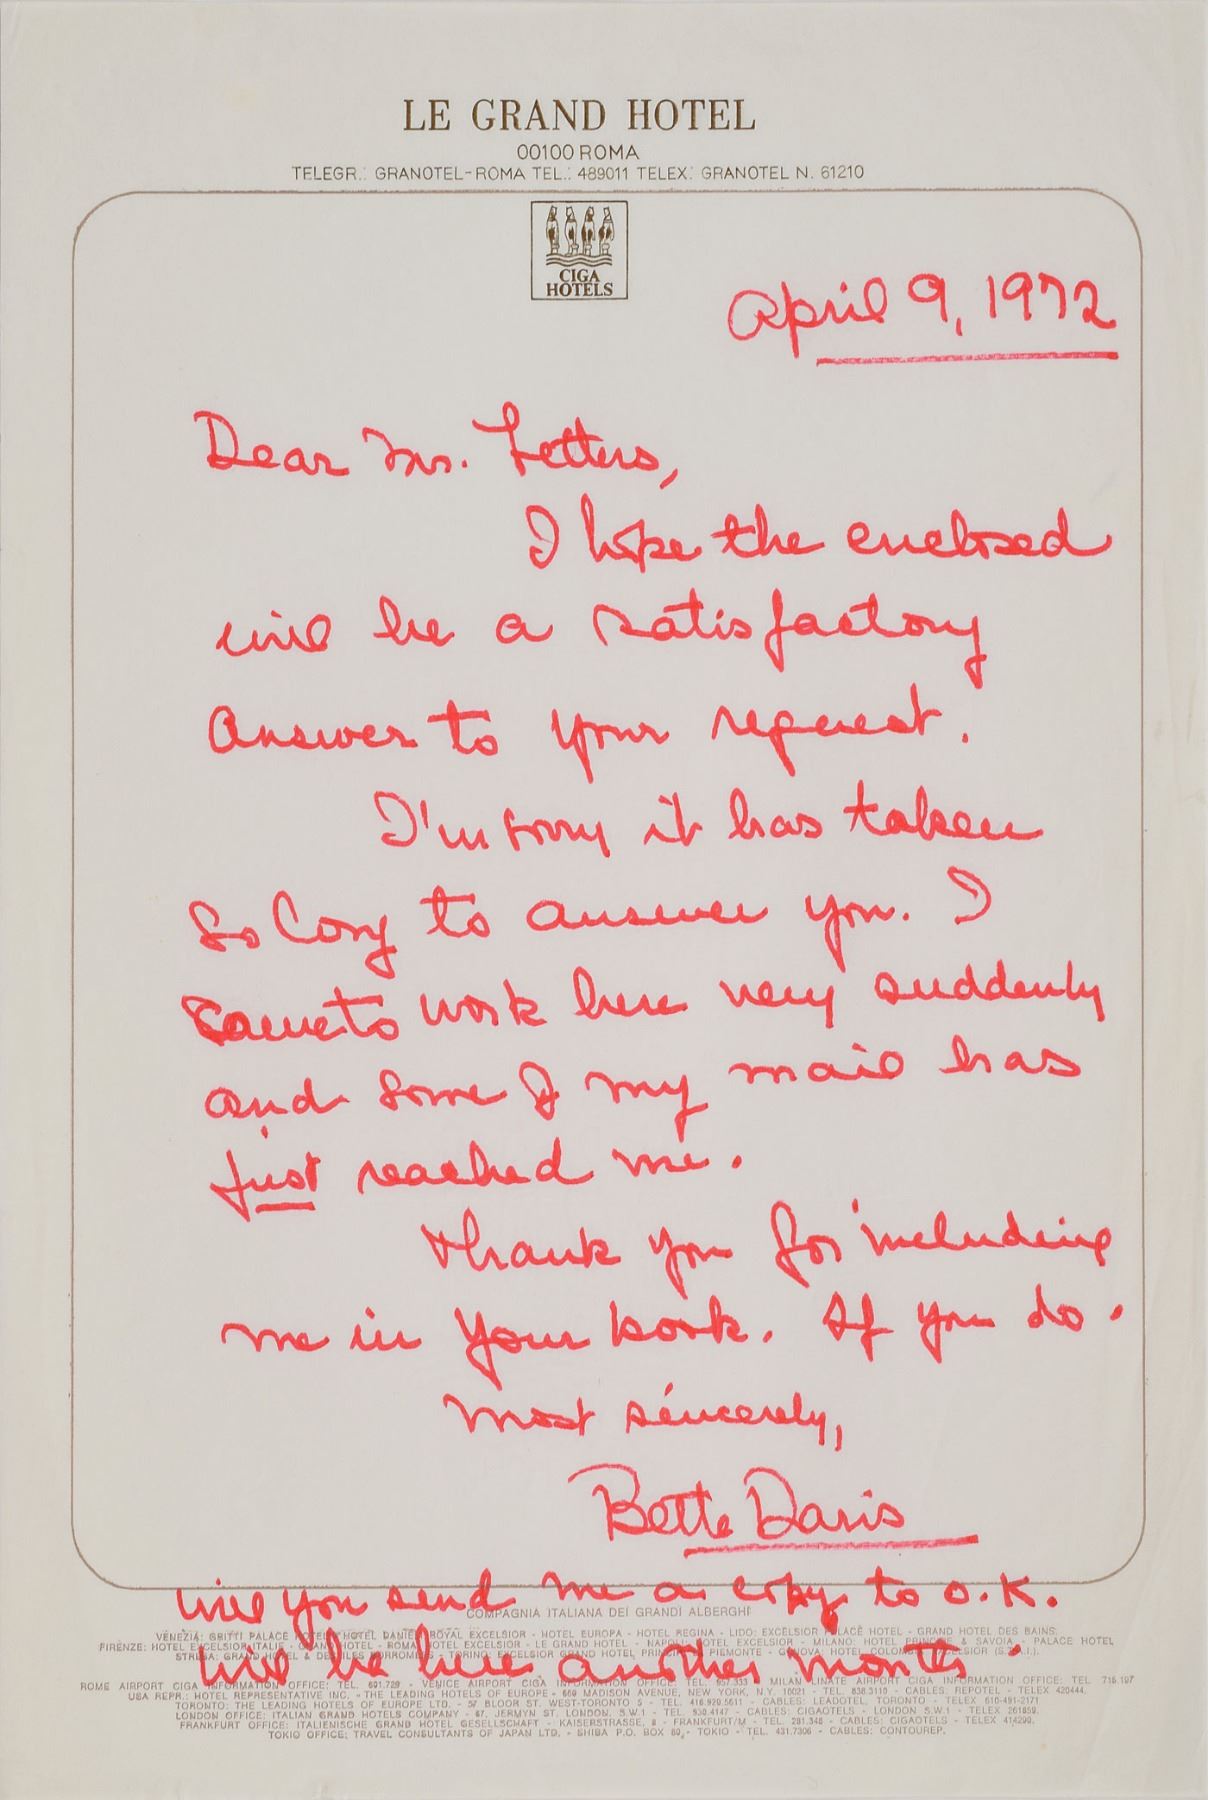 LE GRAND HOTEL
00100 ROMA
TELEGR.: GRANOTEL-ROMA TEL.: 489011 TELEX: GRANOTEL N. 61210
CIGA
HOTELS
April 9, 1972
Dear Mr. Fetters,
I hope the enclosed
will be a satisfactory
answer to your request.
I'm sorry it has taken
so long to answer you. I
came to work here very suddenly
and some of my mail has
just reached me.
Thank you for including
me in your book. If you do.
Most sincerely,
Bette Davis
Will you send me a copy to O.K.
COMPAGNIA ITALIANA DEI GRANDI ALBERGHI
VENEZIA: GRITTI PALACE HOTEL - HOTEL DANIELI ROYAL EXCELSIOR - HOTEL EUROPA - HOTEL REGINA - LIDO: EXCELSIOR PALACE HOTEL - GRAND HOTEL DES BAINS
FIRENZE: HOTEL EXCELSIOR ITALIE - GRAND HOTEL - ROMA: HOTEL EXCELSIOR - LE GRAND HOTEL - NAPOLI: HOTEL EXCELSIOR - MILANO: HOTEL & SAVOIA - PALACE HOTEL
STRESA: GRAND HOTEL & DES ILES BORROMEES - TORINO: EXCELSIOR GRAND HOTEL PRINCIPI PIEMONTE - GENOVA: HOTEL EXCELSIOR (S.I.A.I.).
Will be here another month.
ROME AIRPORT CIGA INFORMATION OFFICE: TEL. 601.729 - VENICE AIRPORT CIGA INFORMATION OFFICE: TEL. 957.333 - MILAN LINATE AIRPORT CIGA INFORMATION OFFICE: TEL. 716.197
USA REPR.: HOTEL REPRESENTATIVE INC. - THE LEADING HOTELS OF EUROPE - 660 MADISON AVENUE, NEW YORK, N.Y. 10021 - TEL. 838.3110 - CABLES: REPOTEL - TELEX 420444.
TORONTO: THE LEADING HOTELS OF EUROPE LTD. - 57 BLOOR ST. WEST-TORONTO 5 - TEL. 416.920.5611 - CABLES: LEADOTEL, TORONTO - TELEX 610-491-2171
LONDON OFFICE: ITALIAN GRAND HOTELS COMPANY - 67, JERMYN ST. LONDON, S.W.1 - TEL. 930.4147 - CABLES: CIGAOTELS - LONDON S.W.1 - TELEX 261859.
FRANKFURT OFFICE: ITALIENISCHE GRAND HOTEL GESELLSCHAFT - KAISERSTRASSE, - FRANKFURT/M - TEL. 281.348 - CABLES: CIGAOTELS - TELEX 414290.
TOKIO OFFICE: TRAVEL CONSULTANTS OF JAPAN LTD. - SHIBA P.O. BOX 80,- TOKIO - TEL. 431.7306 - CABLES: CONTOUREP.